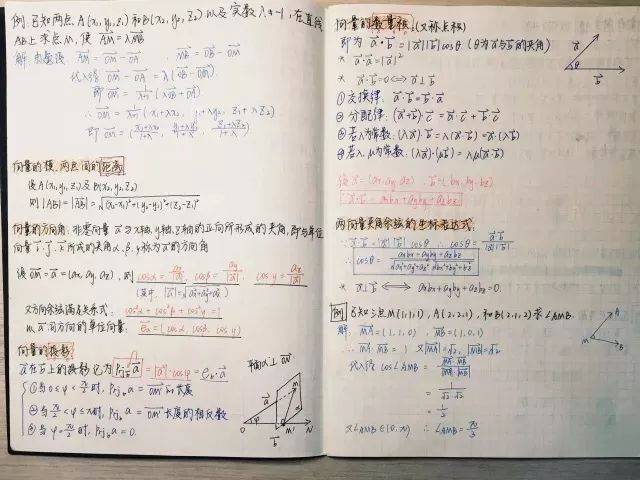 例. 已知两点 A(x₁,y₁,z₁) 和 B(x₂,y₂,z₂) 以及实数 λ≠-1, 在直线
AB上求点M, 使 AM=λMB
解. 由题 AM=OM-OA MB=OB-OM
代入得 OM-OA=λ(OB-OM)
即 OM=1/(λ+1)(λOB+OA)
向量的模. 两点间的距离
设A(x₁,y₁,z₁)及B(x₂,y₂,z₂)
则|AB|=|AB|=√(x₂-x₁)²+(y₂-y₁)²+(z₂-z₁)²
向量的方向角: 非零向量 a 与x轴, y轴, z轴的正向所形成的夹角, 即与单位
向量 i, j, k 所成的夹角 α, β, γ称为a的方向角
设 OM=a=(ax, ay, az), 则 cosα=ax/|a| cosβ=ay/|a| cosγ=az/|a|
(其中, |a|=√ax²+ay²+az²)
又方向余弦满足关系式: cos²α+cos²β+cos²γ=1
而a同方向的单位向量: ea=(cosα, cosβ, cosγ)
向量的投影
a在b上的投影记为 Prj_b a=|a|·cosφ=e_b·a 平面α⊥ON
①当0≤φ<π/2时, Prj_b a=OM'的长度
②当π/2<φ≤π时, Prj_b a=OM'长度的相反数
③当φ=π/2时, Prj_b a=0.
a
O φ M' N
b
向量的数量积:(又称点积)
即为 a·b=|a||b|cosθ (θ为a与b的夹角)
* a·a=|a|²
* a·b=0⇔a⊥b
a
θ
b
①交换律: a·b=b·a
②分配律: (a+b)·c=a·c+b·c
③若λ为常数: (λa)·b=λ(a·b)=a·(λb)
④若λ, μ为常数: (λa)·(μb)=λμ(a·b)
设a=(ax, ay, az) b=(bx, by, bz)
a·b=axbx+ayby+azbz
两向量夹角余弦的坐标表达式:
∵ a·b=|a||b|cosθ ∴ cosθ=a·b/|a||b|
∴ cosθ=axbx+ayby+azbz/√ax²+ay²+az² √bx²+by²+bz²
* a⊥b ⇔ axbx+ayby+azbz=0.
例 已知三点M(1,1,1), A(2,2,1), 和B(2,1,2) 求∠AMB.
解. MA=(1,1,0) MB=(1,0,1)
∴ MA·MB=1 又|MA|=√2, |MB|=√2
代入得 cos∠AMB=MA·MB/|MA|·|MB|
=1/√2·√2
=1/2
又∠AMB∈(0,π) ∴ ∠AMB=π/3
A
M
B